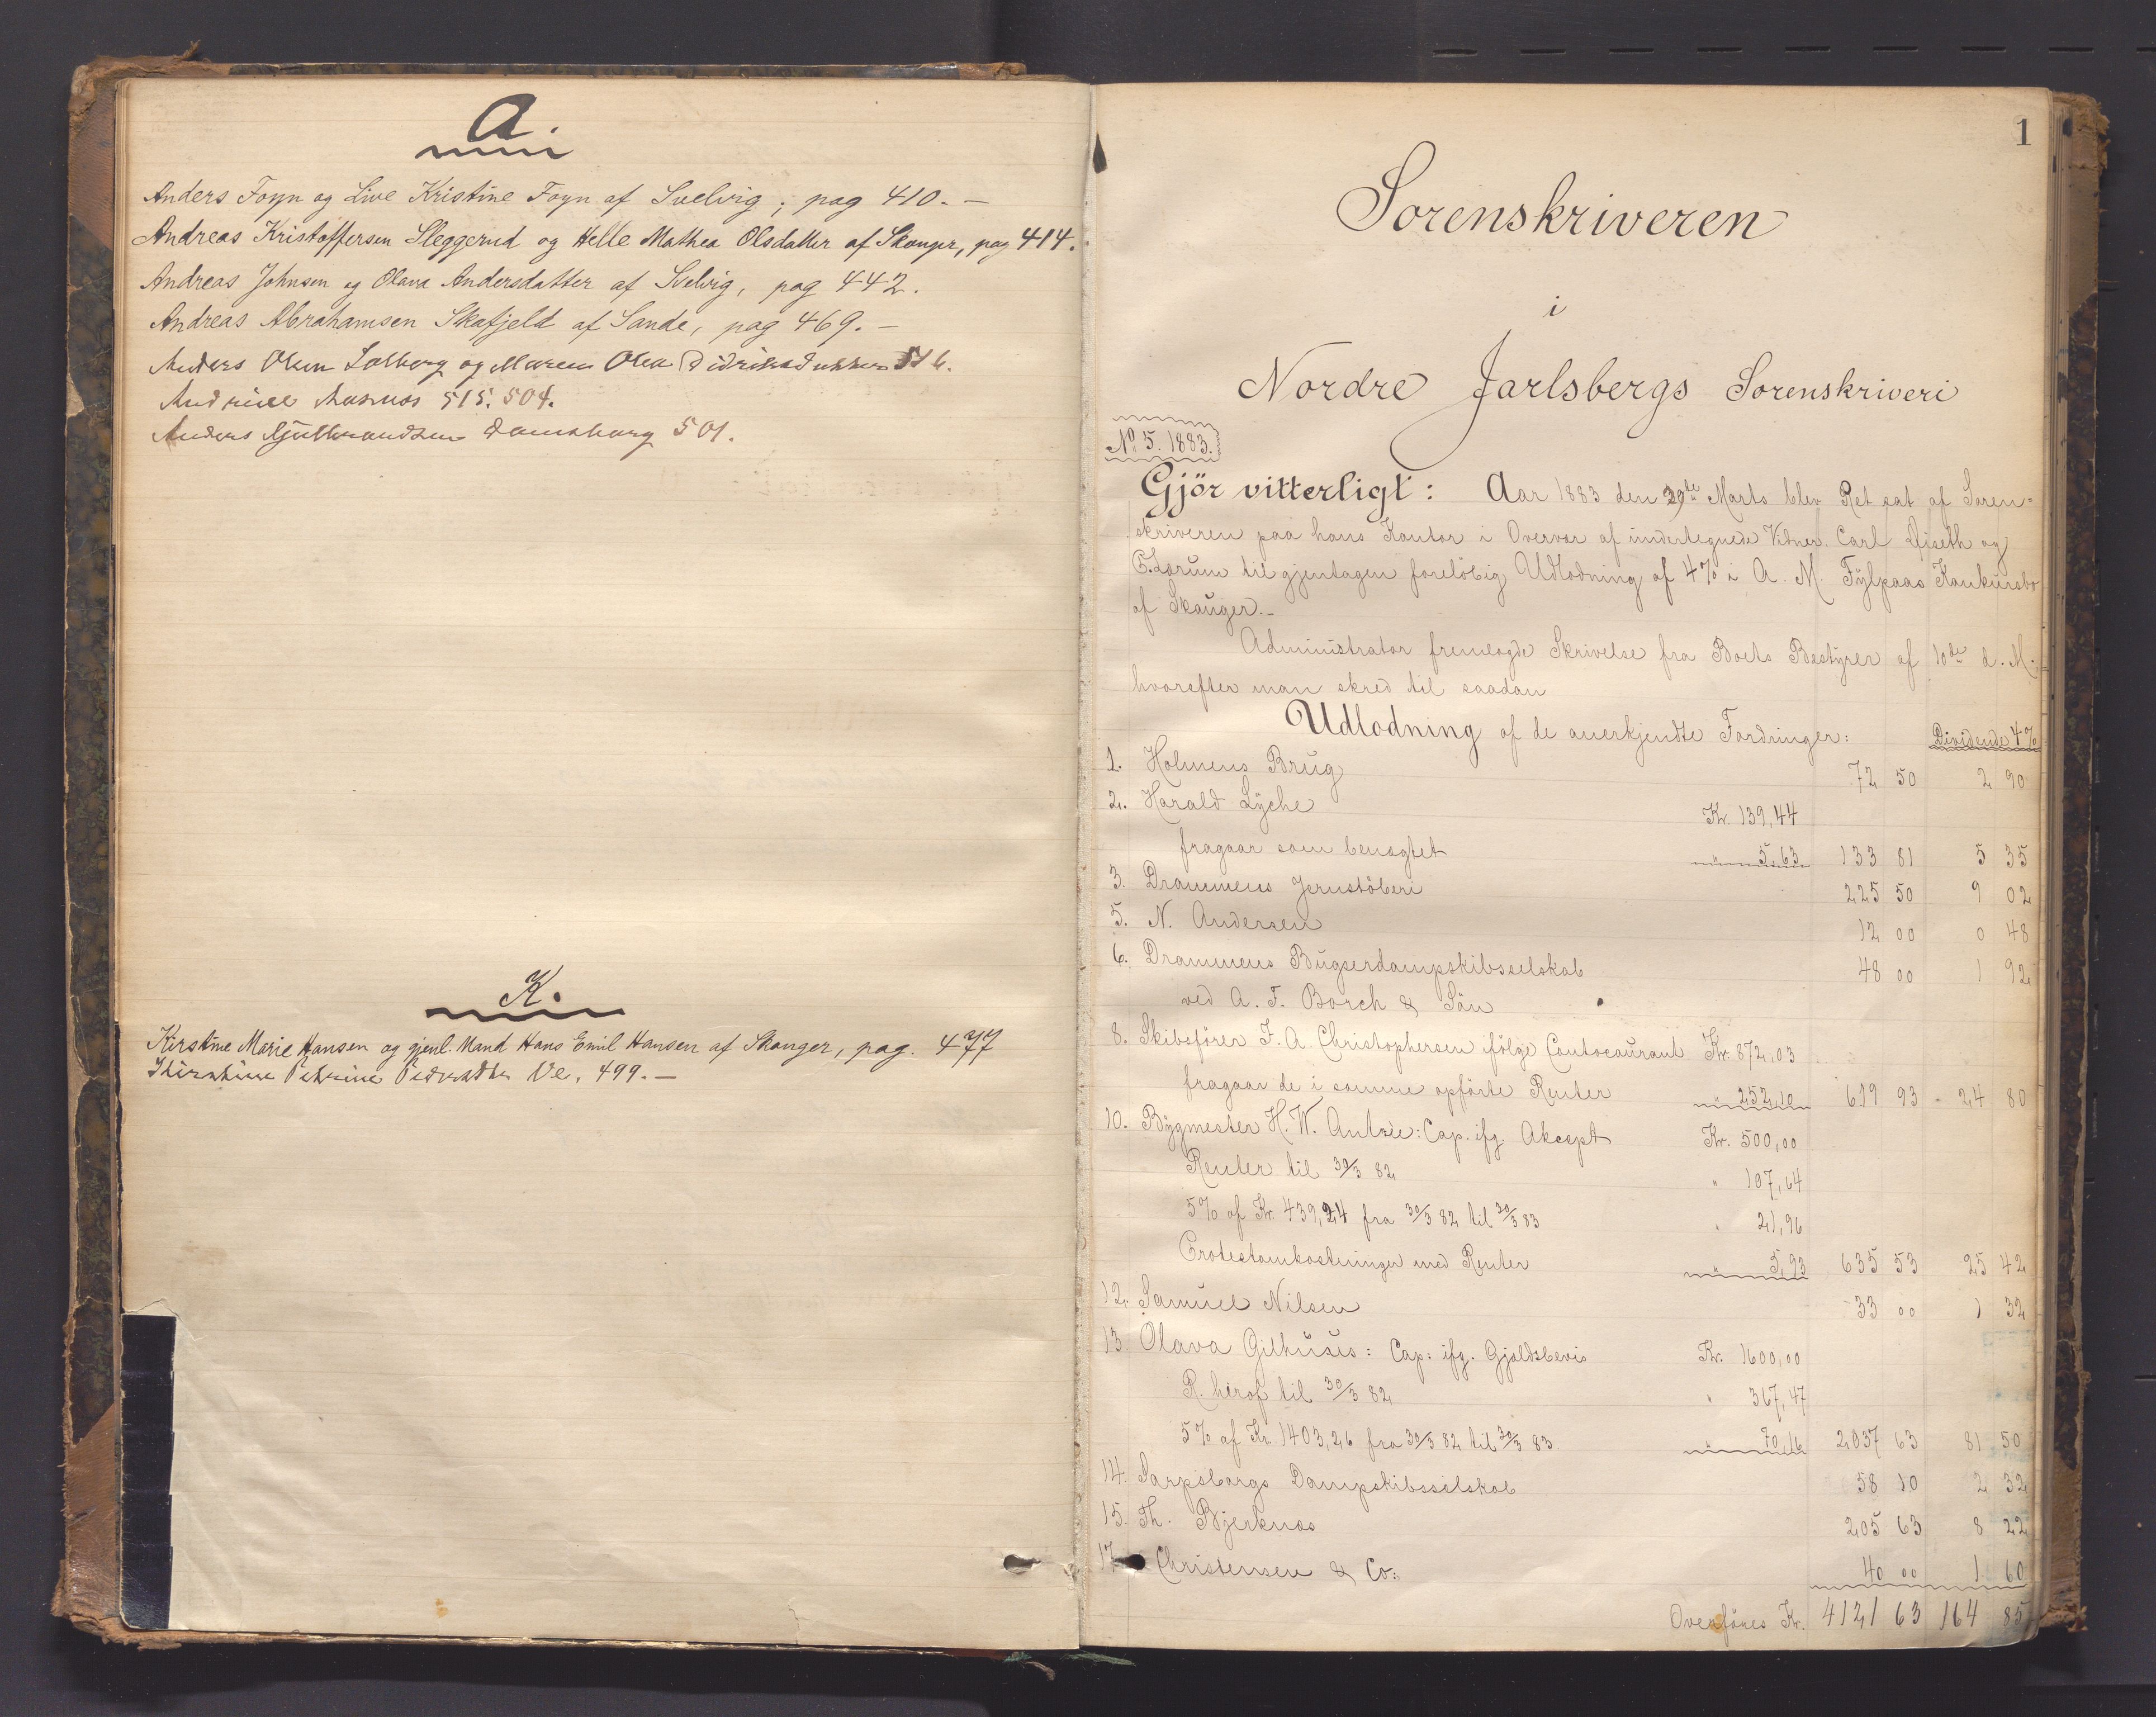 A.
Anders Foyn og Live Kristine Foyn af Svelvig; pag 410. —
Andreas Kristoffersen Sleggerud og Helle Mathea Olsdatter af Skouger, pag 414.
Andreas Johnsen og Olava Andersdatter af Svelvig, pag 442.
Andreas Abrahamsen Skafjeld af Sande, pag 469. —
Anders Olsen Solberg og Maren Olea Didriksdatter 516.
Rasmus 515. 504.
Anders Gulbrandsen 501.
K.
Kirstine Marie Hansen og gjenl. Mand Hans Emil Hansen af Skouger, pag. 477
Petrine Ve. 499. —
1
Sorenskriveren
i
Nordre Jarlsbergs Sorenskriveri
No 5. 1883.
Gjör vitterligt: Aar 1883 den 29de Marts blev Ret sat af Soren=
skriveren paa hans Kontor i Overvær af undertegnede Vidner Carl Djseth og
C. Lorum til gjentagen foreløbig Udlodning af 4% i A. M. Fylpaas Konkursbo
af Skouger.—
Administrator fremlagde Skrivelse fra Boets Bestyrer af 10de d. M.
hvorefter man skred til saadan
Udlodning af de anerkjendte Fordringer: Dividende 4%
1. Holmens Brug 72 50 2 90
2. Harald Lyche Kr. 139,44
fragaar som benægtet " 5,63 133 81 5 35
3. Drammens Jernstöberi 225 50 9 02
5. N. Andersen 12 00 0 48
6. Drammens Bugserdampskibsselskab 48 00 1 92
ved A. F. Borch & Sön
8. Skibsförer F. A. Christophersen ifölge Contocourant Kr. 872,03
fragaar de i samme opförte Renter " 252,10 619 93 24 80
10. Bygmester H. W. Antsée: Cap. ifg. Akcept Kr. 500,00
Renter til 30/3 82 " 107,64
5% af Kr. 439,24 fra 30/3 82 til 30/3 83 " 21,96
Protestomkostninger med Renter " 5,93 635 53 25 42
12. Samuel Nilsen 33 00 1 32
13. Olava Gilhuses: Cap: ifg. Gjældsbevis Kr. 1600,00
R. heraf til 30/3 82 " 367,47
5% af Kr. 1403,26 fra 30/3 82 til 30/3 83 " 70,16 2037 63 81 50
14. Sarpsborgs Dampskibsselskab 58 10 2 32
15. Th. Bjerknæs 205 63 8 22
17. Christensen & Co: 40 00 1 60
Overföres Kr. 4121 63 164 85